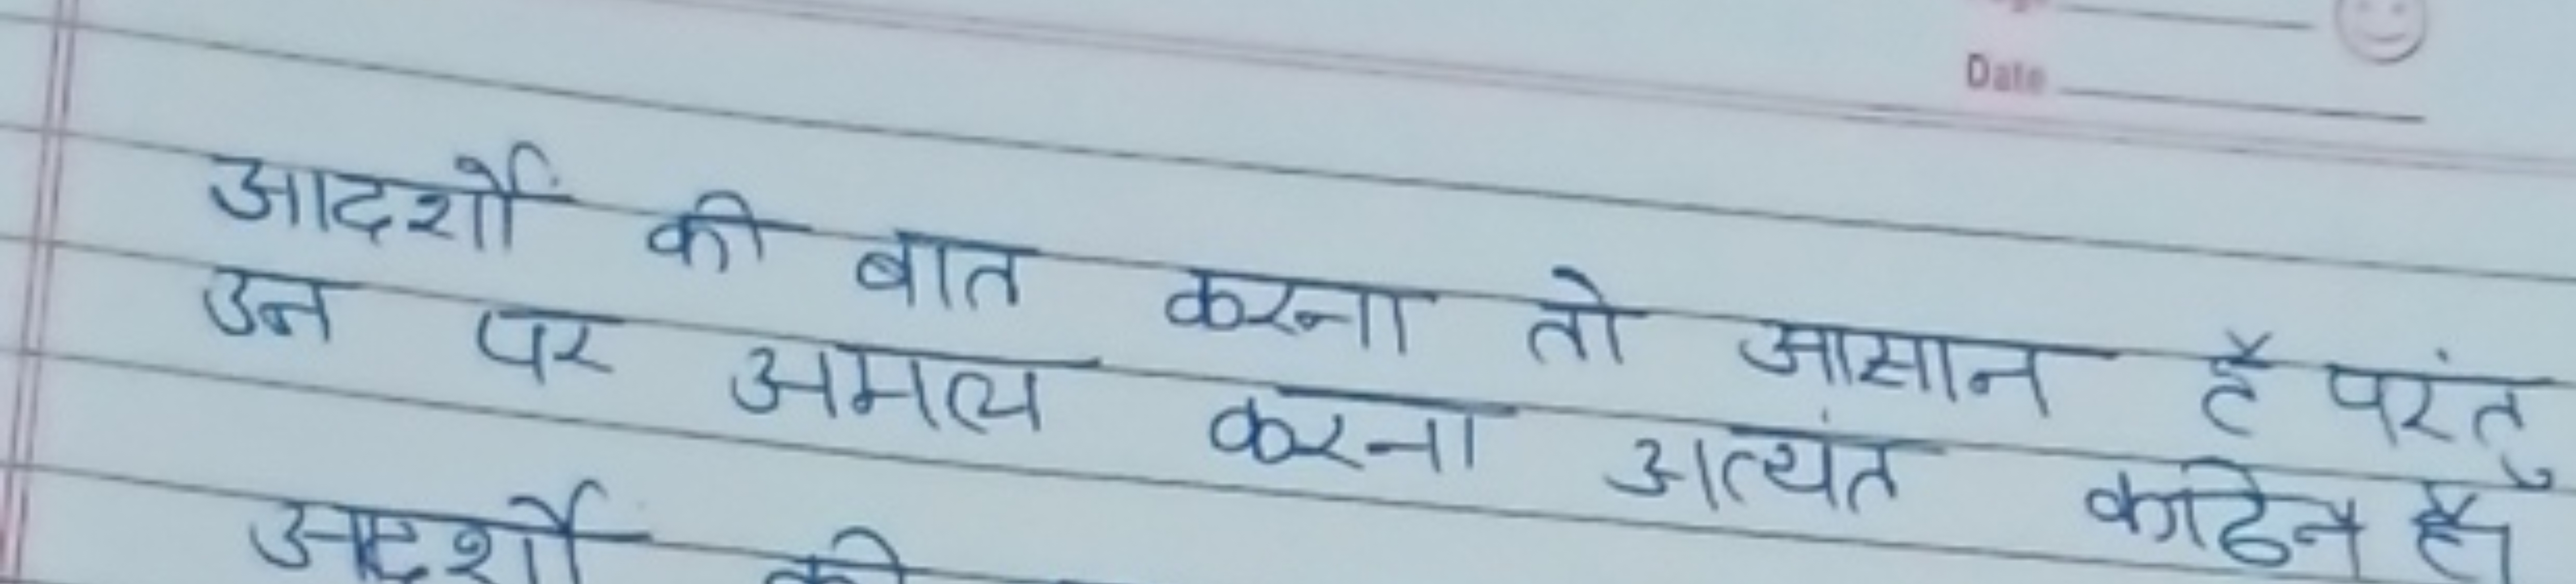 Date
आदर्शों की बात करना तो आसान है परंतु
उन पर अमल करना अत्यंत कठिन है।
आदर्शों की